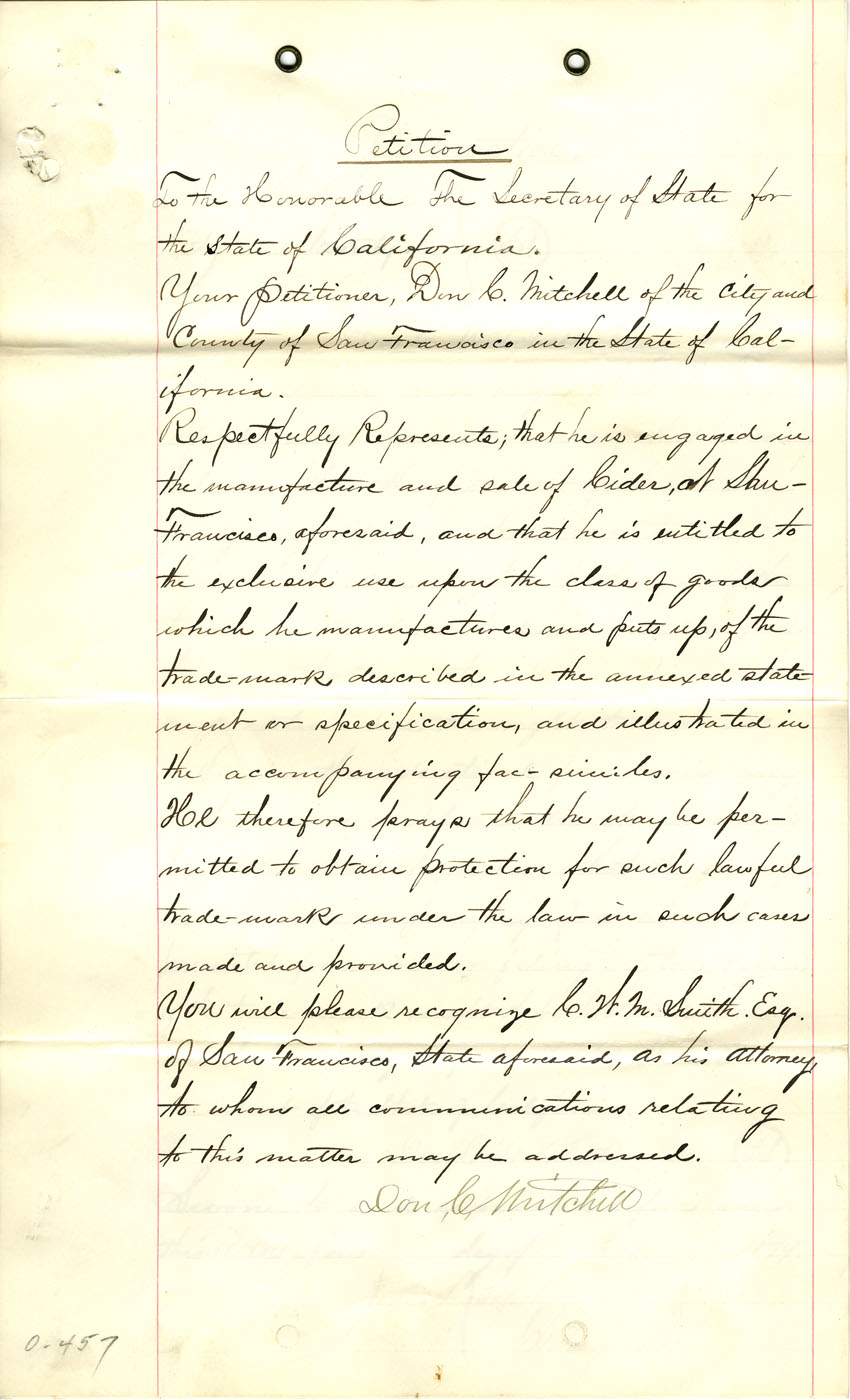 Petition
To the Honorable The Secretary of State for
the State of California.
Your Petitioner, Don C. Mitchell of the City and
County of San Francisco in the State of Cal-
ifornia.
Respectfully Represents; that he is engaged in
the manufacture and sale of Cider, at San-
Francisco, aforesaid, and that he is entitled to
the exclusive use upon the class of goods
which he manufactures and puts up, of the
trade-mark described in the annexed state-
ment or specification, and illustrated in
the accompanying fac-similes.
He therefore prays that he may be per-
mitted to obtain protection for such lawful
trade-mark under the law in such cases
made and provided.
You will please recognize C. W. M. Smith. Esq.
of San Francisco, State aforesaid, as his attorney,
to whom all communications relating
to this matter may be addressed.
Don C. Mitchell
0-457